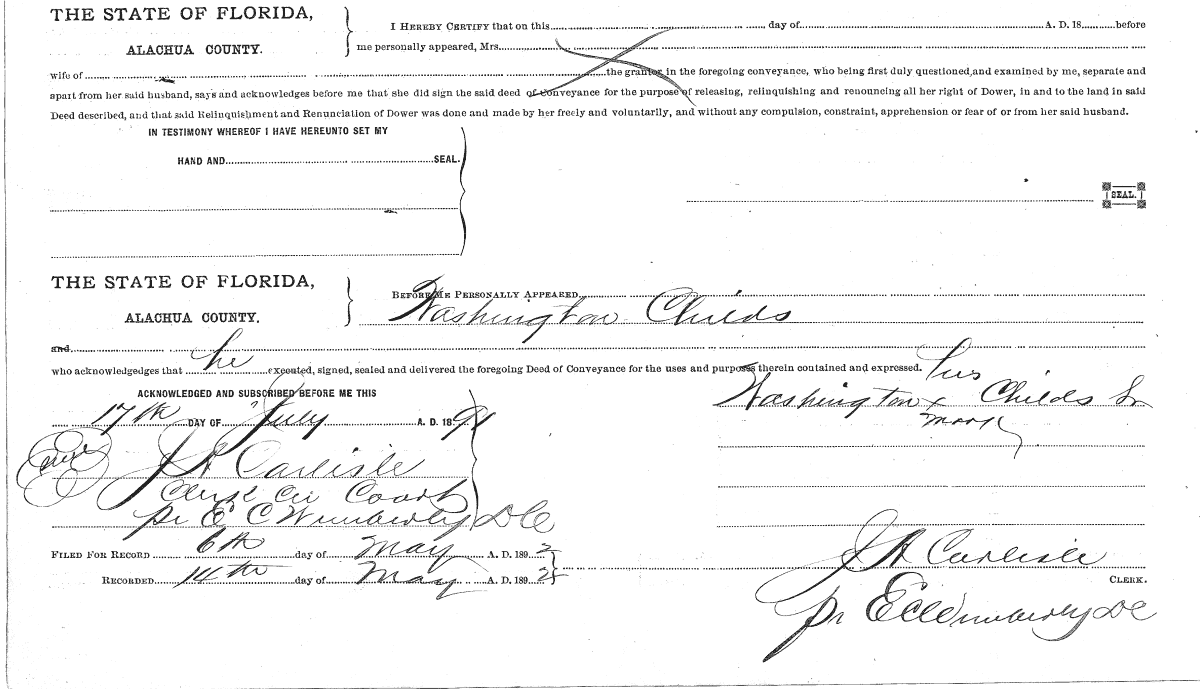 THE STATE OF FLORIDA,
ALACHUA COUNTY.
I HEREBY CERTIFY that on this day of A. D. 18 before
me personally appeared, Mrs.
wife of the grantor in the foregoing conveyance, who being first duly questioned, and examined by me, separate and
apart from her said husband, says and acknowledges before me that she did sign the said deed of conveyance for the purpose of releasing, relinquishing and renouncing all her right of Dower, in and to the land in said
Deed described, and that said Relinquishment and Renunciation of Dower was done and made by her freely and voluntarily, and without any compulsion, constraint, apprehension or fear of or from her said husband.
IN TESTIMONY WHEREOF I HAVE HEREUNTO SET MY
HAND AND SEAL.
SEAL.
THE STATE OF FLORIDA,
ALACHUA COUNTY.
BEFORE ME PERSONALLY APPEARED
Washington Childs
and
who acknowledges that he executed, signed, sealed and delivered the foregoing Deed of Conveyance for the uses and purposes therein contained and expressed.
his
Washington x Childs Sr
mark
ACKNOWLEDGED AND SUBSCRIBED BEFORE ME THIS
17th DAY OF July A. D. 1891
J A Carlisle
Clerk Cir Court
pr E C Wimberly D C
FILED FOR RECORD 6th day of May A. D. 1892
RECORDED 14th day of May A. D. 1892
J A Carlisle
CLERK.
pr E C Wimberly D C